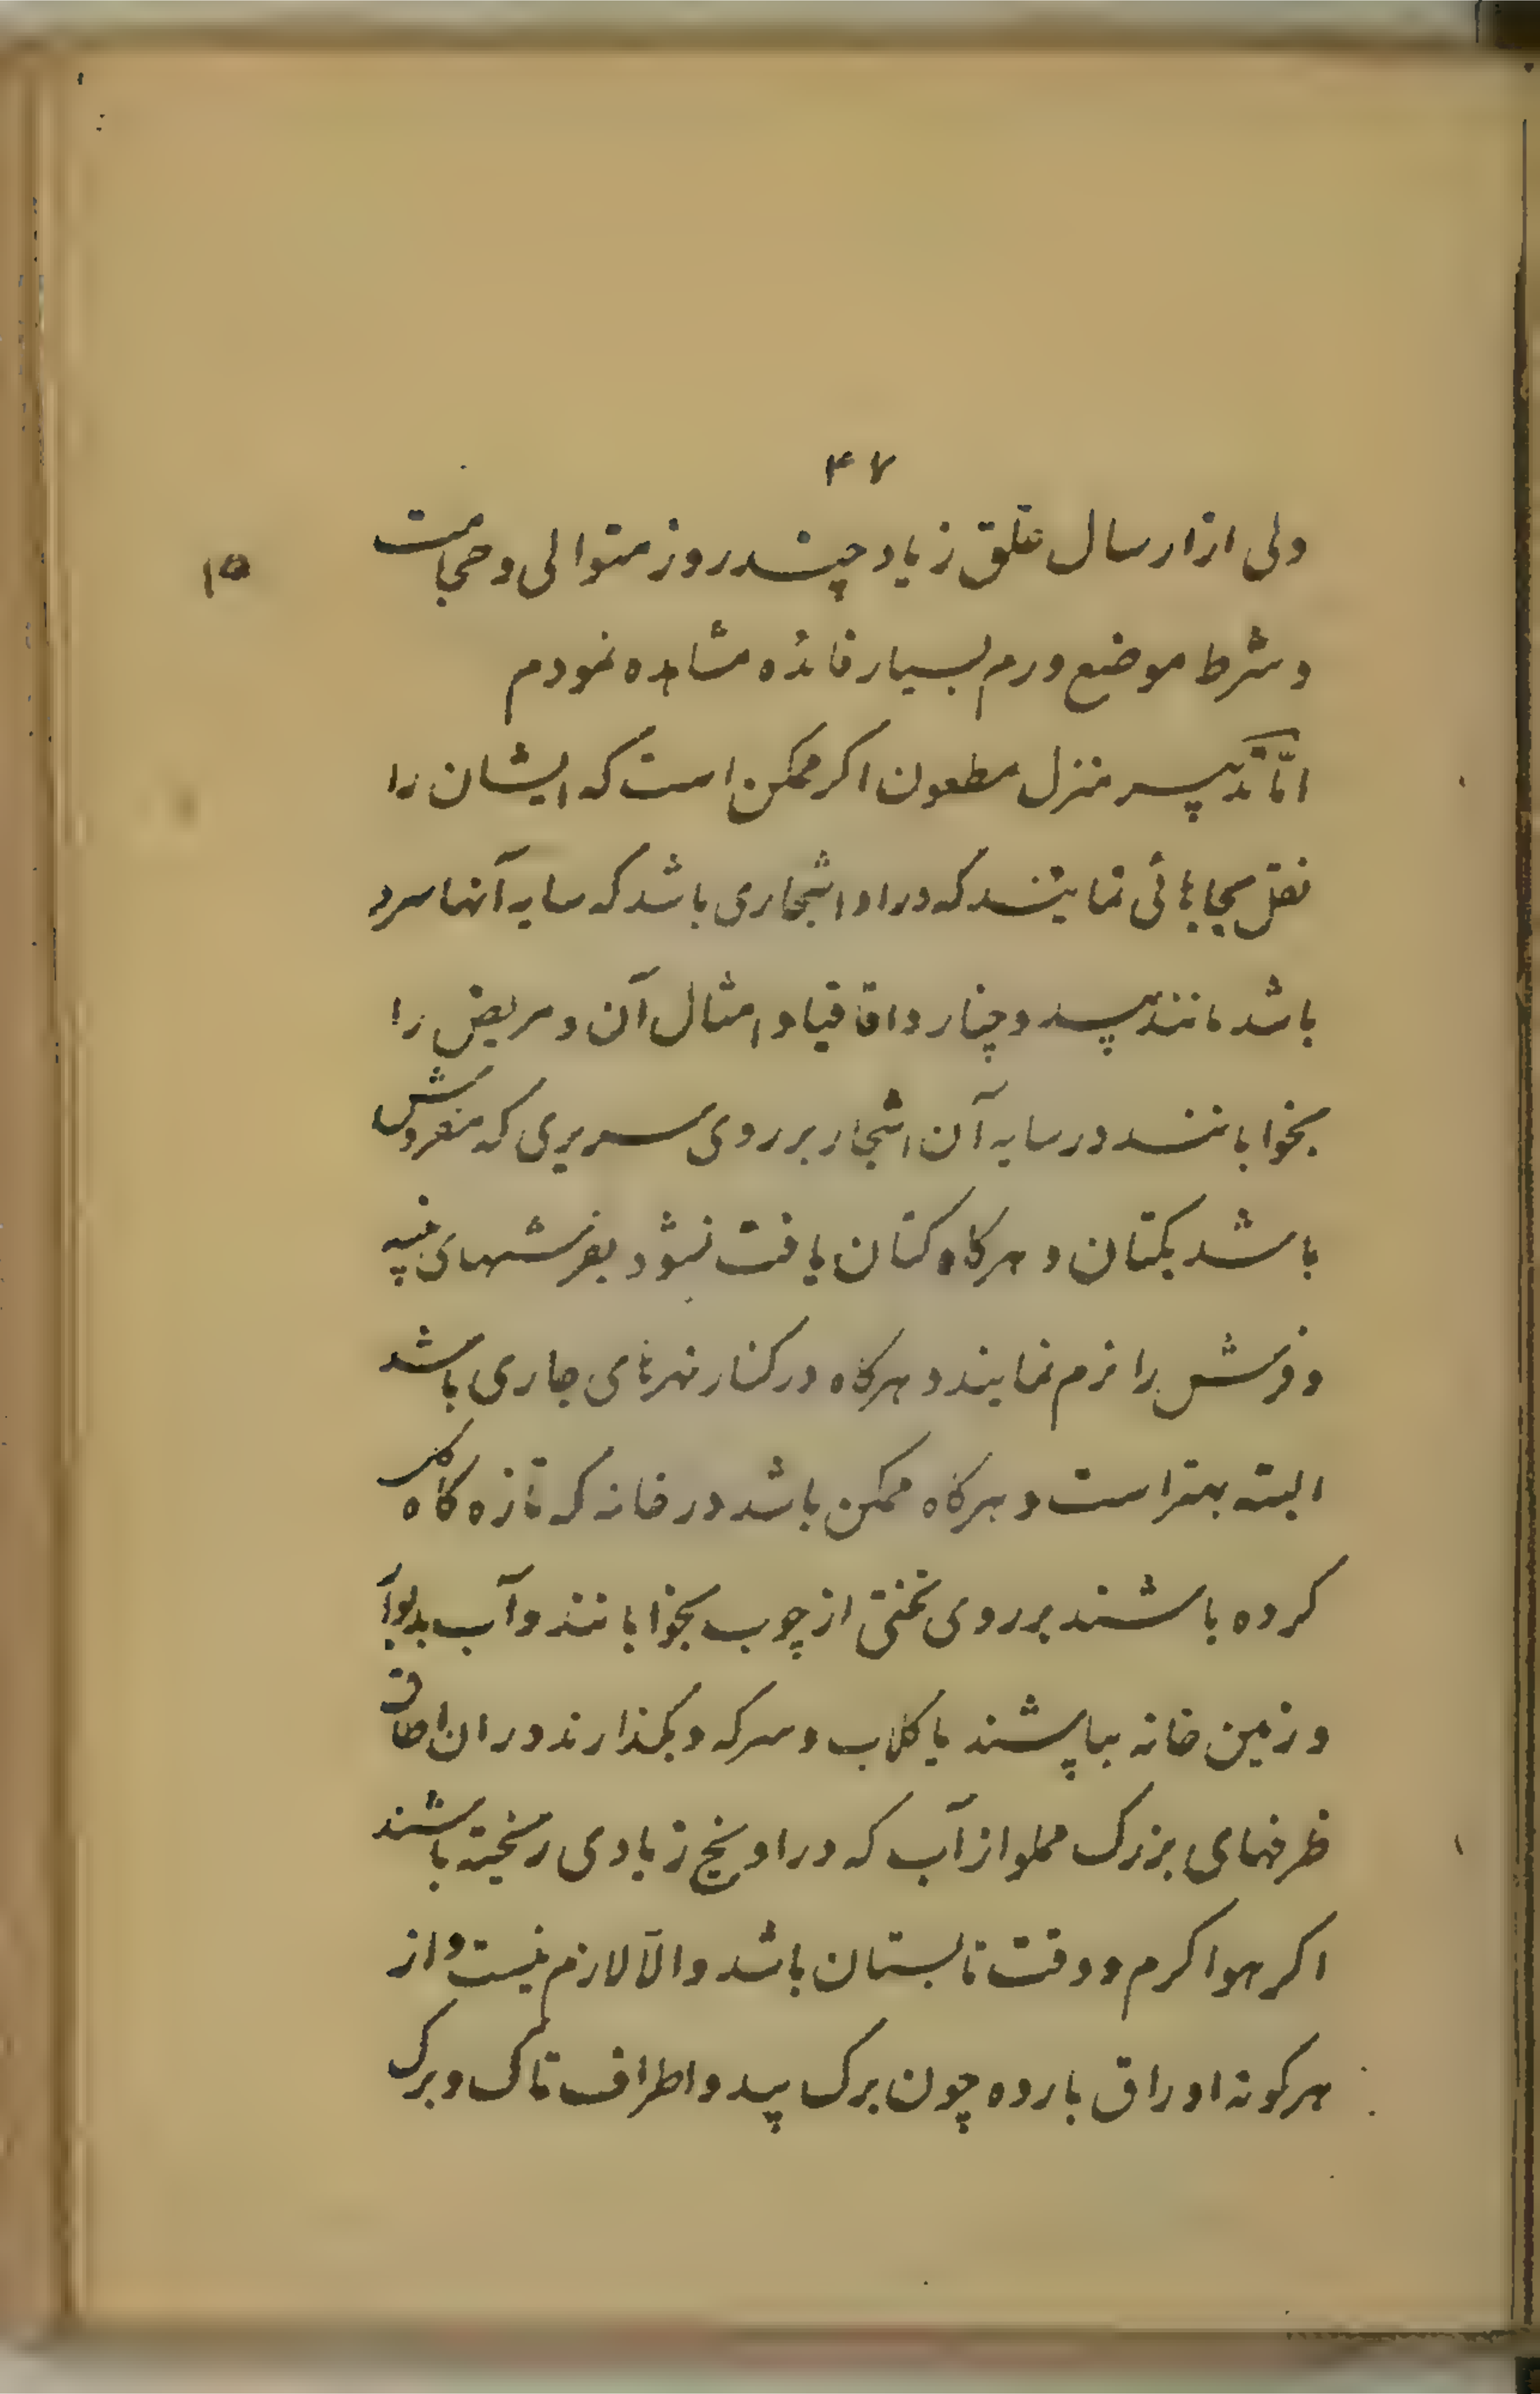 ۴۷
۱۵
ولی از ارسال علق زیاد چند روز متوالی و حجامت
و شرط موضع ورم بسیار فائده مشاهده نمودم
امّا تدبیر منزل مطعون اکر ممکن است که ایشان را
نقل بجاهائی نمایند که در او اشجاری باشد که سایه آنها سرد
باشد مانند بید و چنار و اقاقیا و امثال آن و مریض را
بخوابانند در سایه آن اشجار بر روی سریری که مفروش
باشد بکتان و هرکاه کتان یافت نشود بفرشهای پنبه
و فرش را نرم نمایند و هرکاه در کنار نهرهای جاری باشد
البته بهتر است و هرکاه ممکن باشد در خانه که تازه کاه کل
کرده باشند بر روی تختی از چوب بخوابانند و آب
و زمین خانه بپاشند با کلاب و سرکه و بکذارند در ان اطاق
ظرفهای بزرک مملو از آب که در او یخ زیادی ریخته باشند
اکر هوا کرم و وقت تابستان باشد و الّا لازم نیست و از
هرکونه اوراق بارده چون برک بید و اطراف تاک و برک